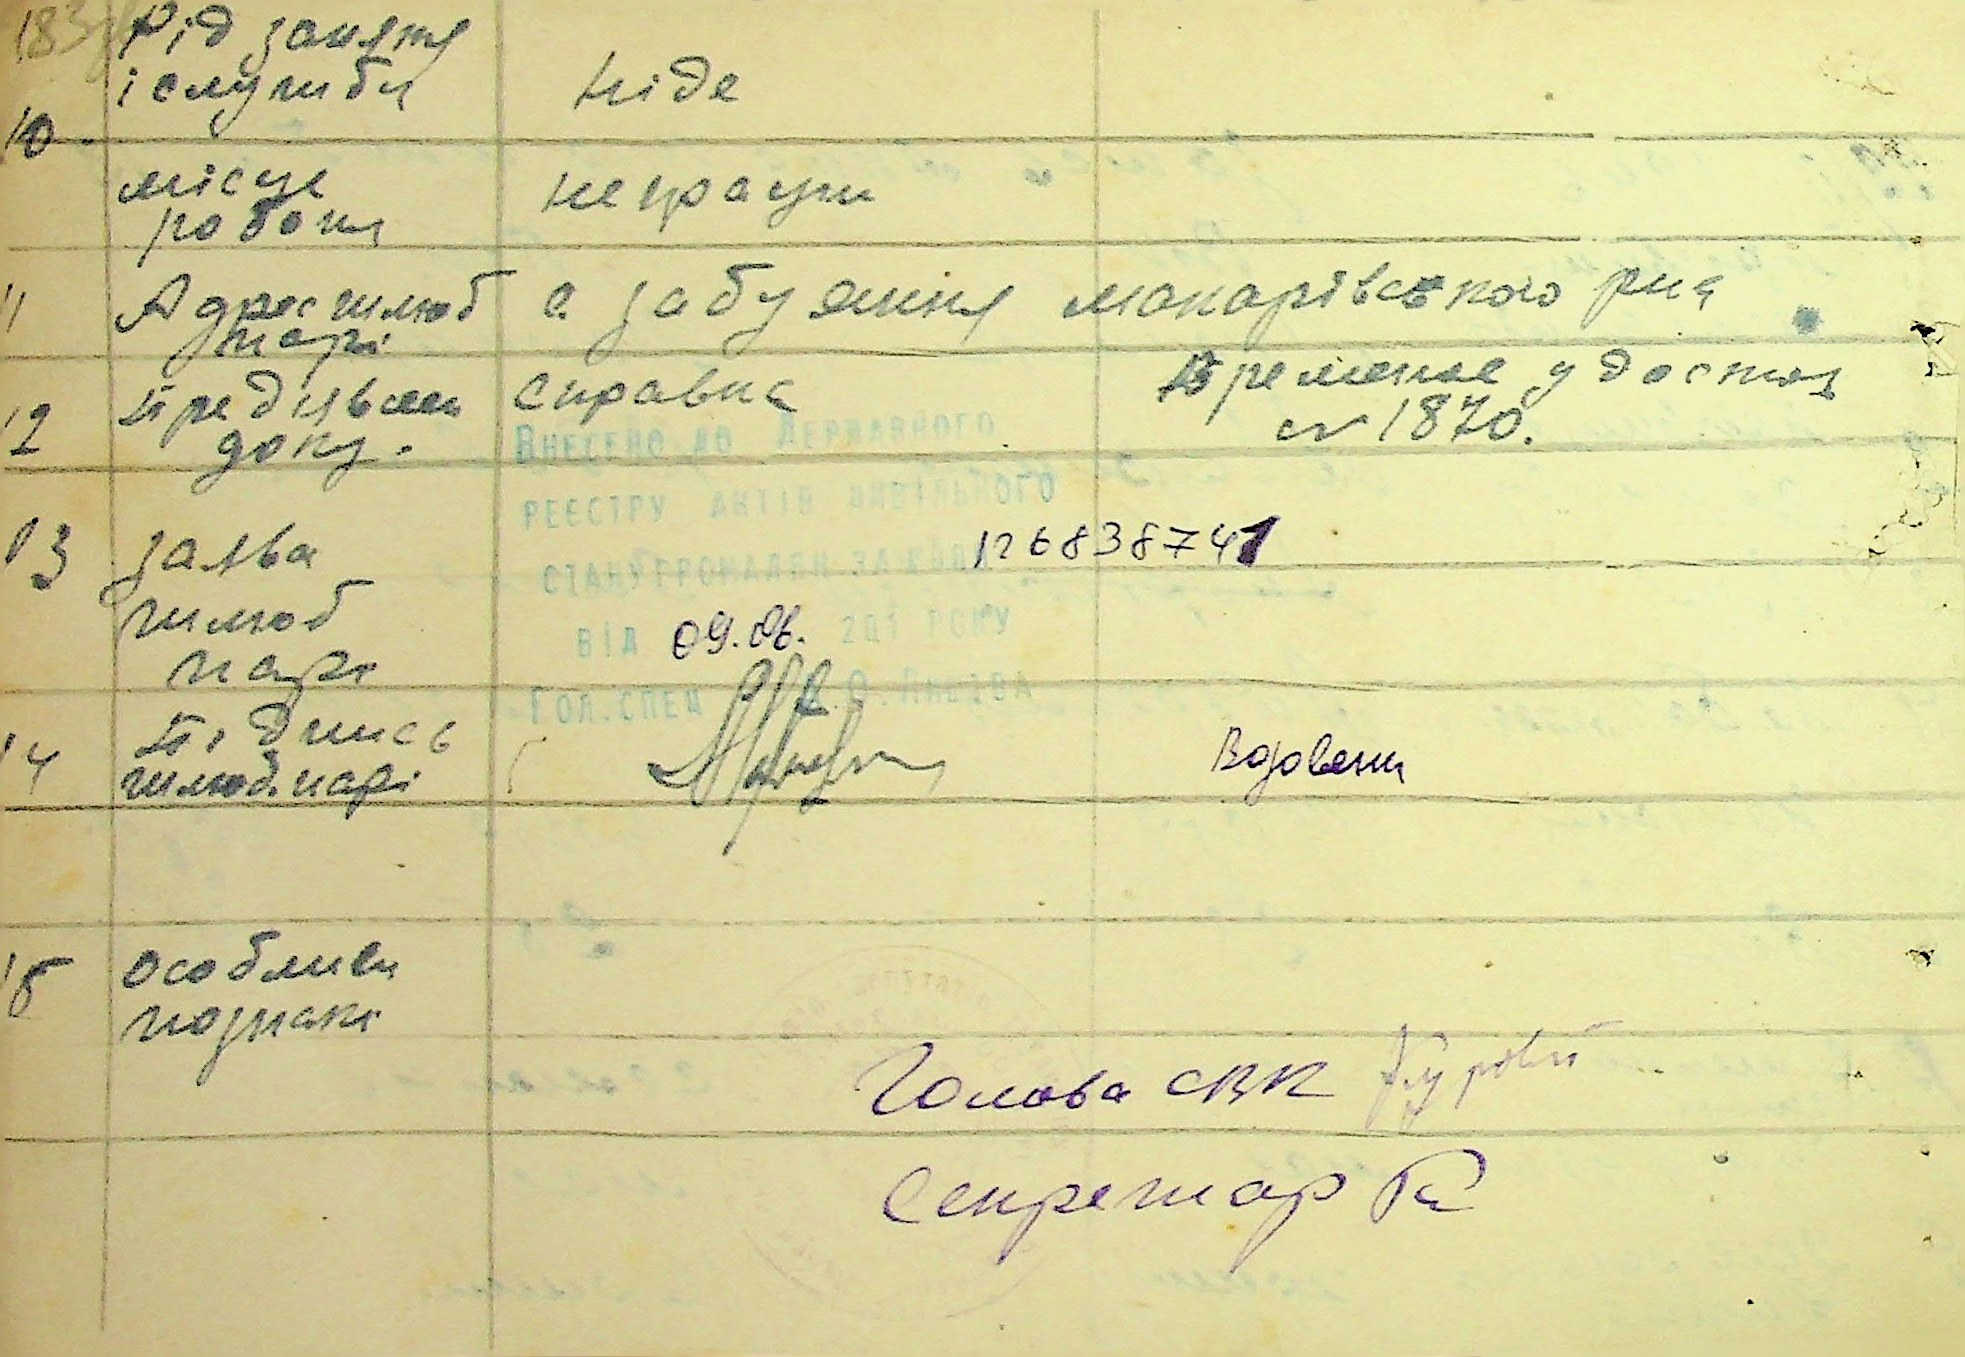 183
Рід заняття
і служби
ніде
10.
місце
роботи
не працює
11 Адрес шлюб с. Забуяння макарівського р-на
парі
12 Предъявлен справка Временое удостов
доку. № 1870.
Внесено до Державного
реєстру актів цивільного
стану громадян за
126838741
від 09.06. 201 року
Гол.спец
13 заява
шлюб
парі
14 Підпись
шлюб.парі
Вдовенк
15 особливи
познакі
Голова СВК
Секретар